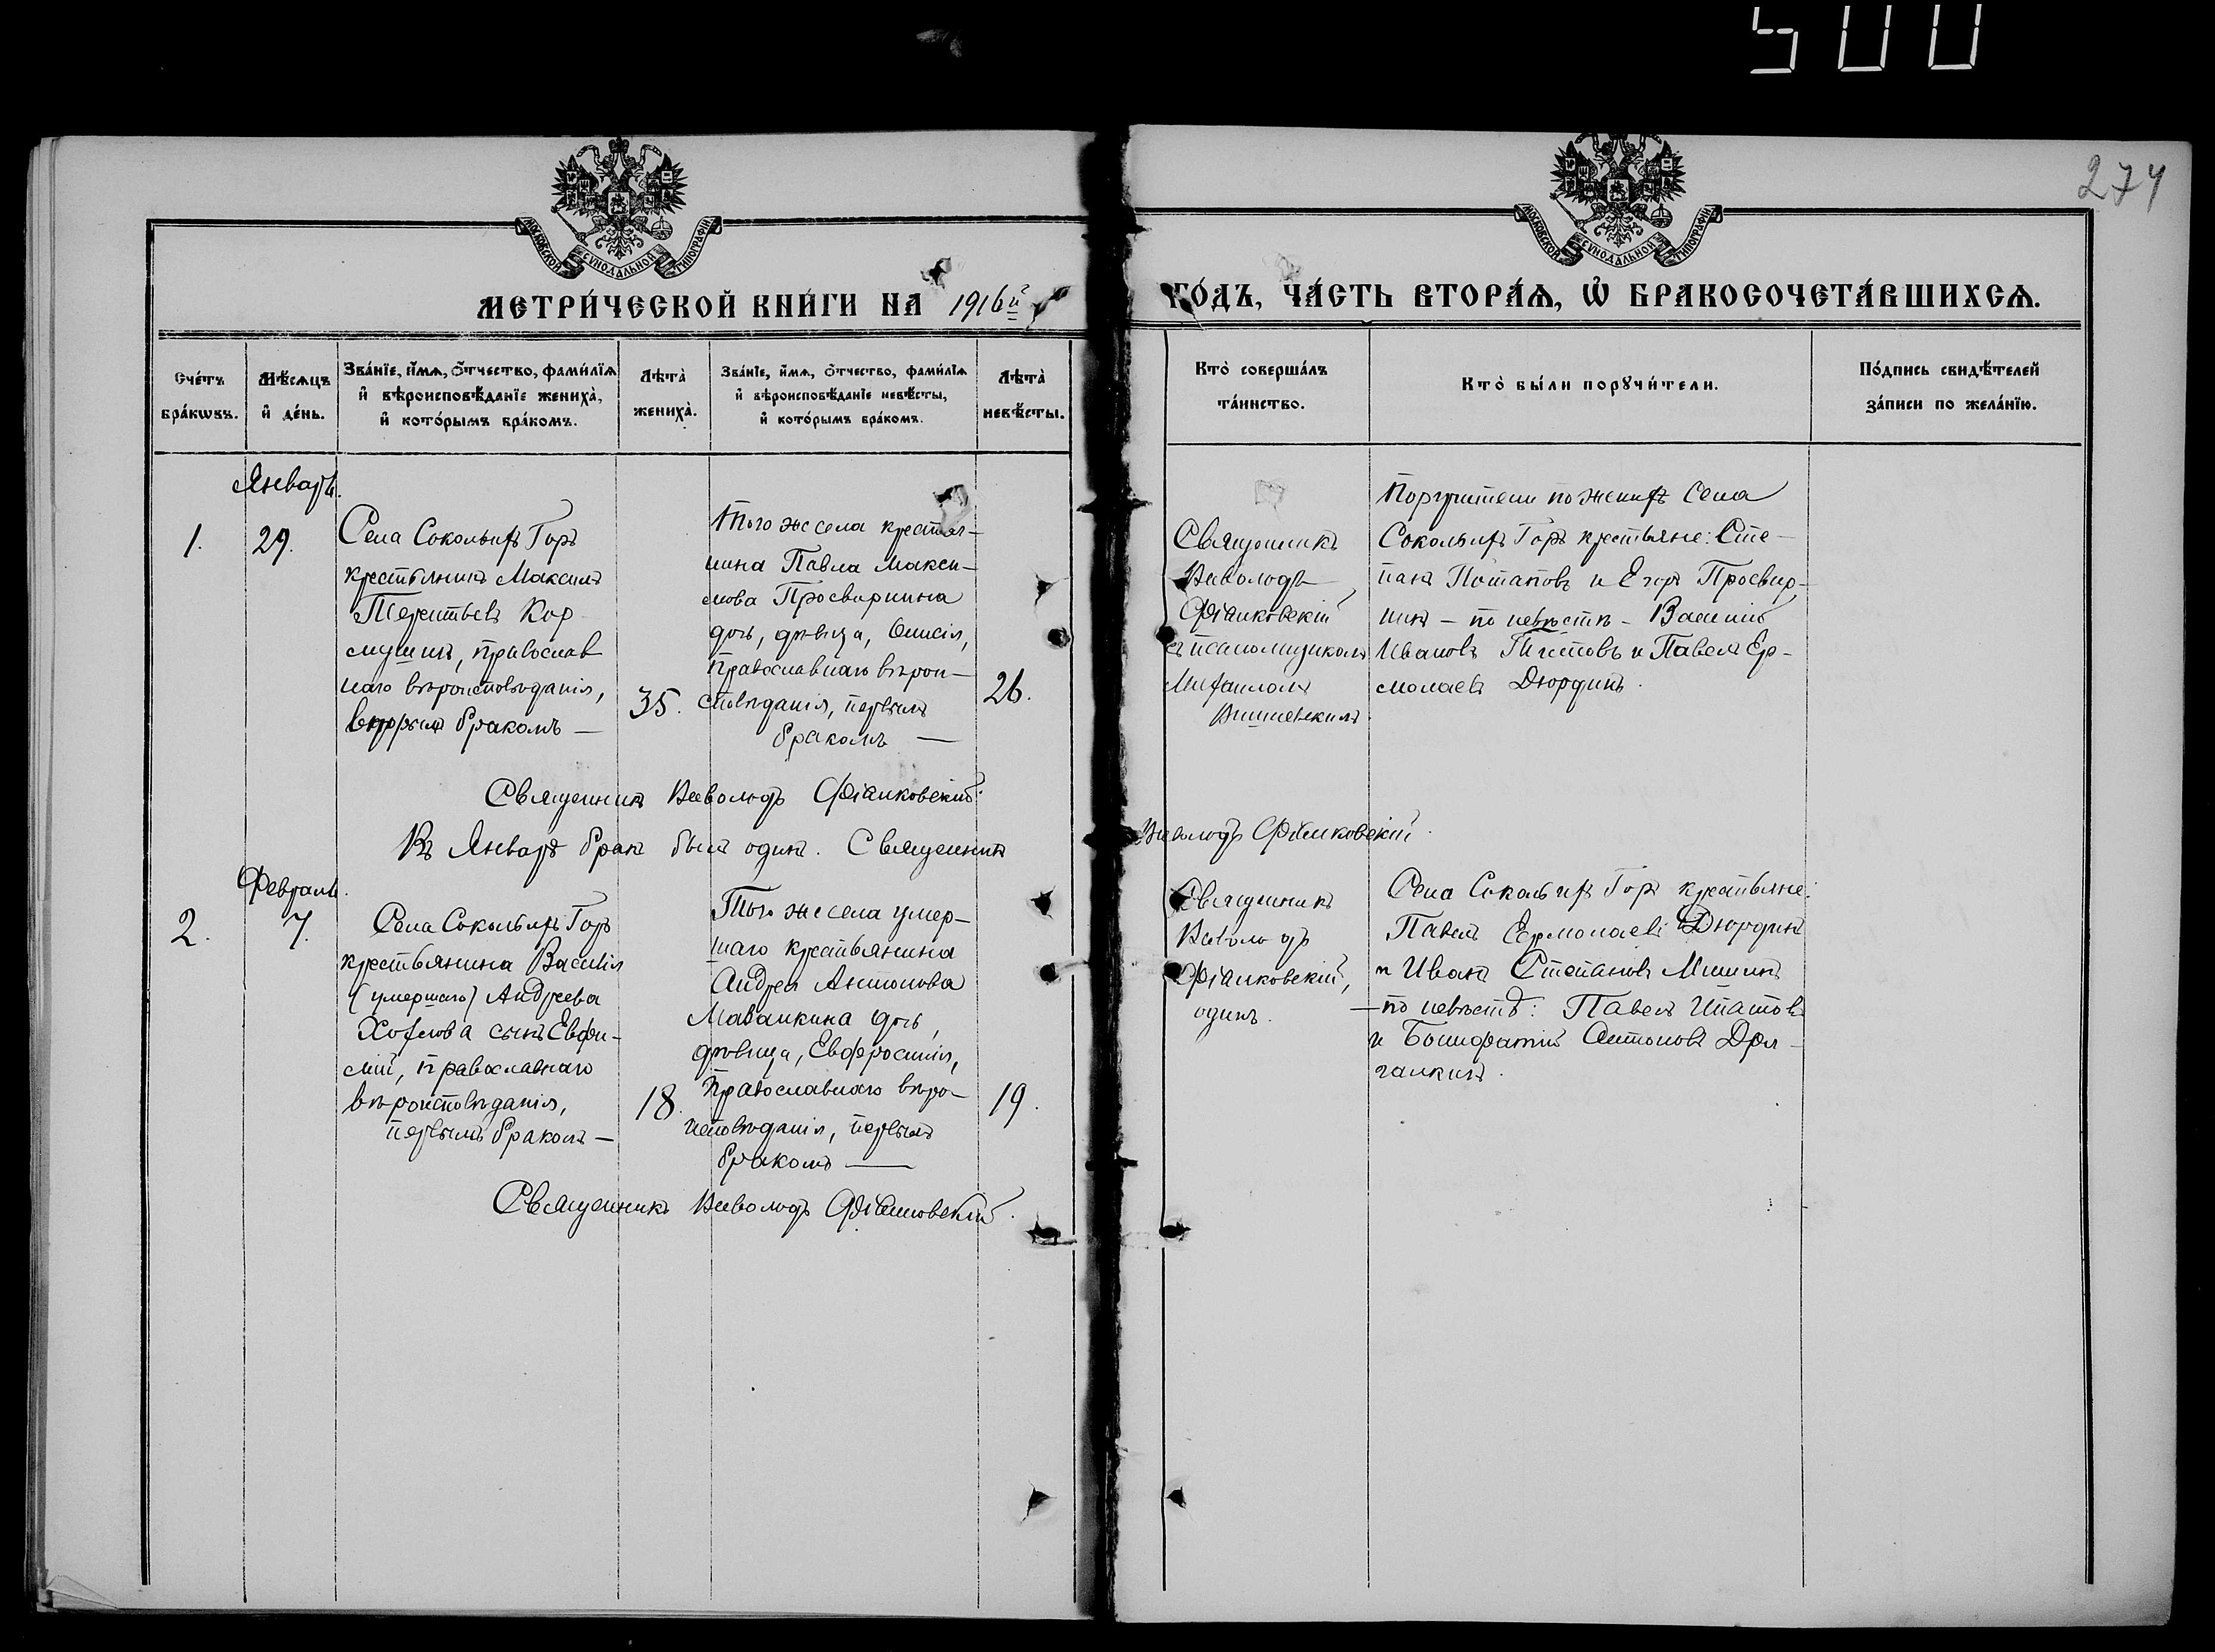 500
274
МОСКОВСКОЙ СѴНОДАЛЬНОЙ ТИПОГРАФІИ
МОСКОВСКОЙ СѴНОДАЛЬНОЙ ТИПОГРАФІИ
МЕТРИ́ЧЕСКОЙ КНИ́ГИ НА 1916й
ГО́ДЪ, ЧА́СТЬ ВТОРА́Ѧ, Ѽ БРАКОСОЧЕТА́ВШИХСѦ.
Сче́тъ
бра́кѡвъ.
Мѣ́сѧцъ
и҆ де́нь.
Зва́нїе, и҆́мѧ, ѻ҆́тчество, фами́лїѧ
и҆ вѣроисповѣ́данїе жениха̀,
и҆ кото́рымъ бра́комъ.
Лѣ́та̀
жениха̀.
Зва́нїе, и҆́мѧ, ѻ҆́тчество, фами́лїѧ
и҆ вѣроисповѣ́данїе невѣ́сты,
и҆ кото́рымъ бра́комъ.
Лѣ́та̀
невѣ́сты.
Кто̀ соверша́лъ
та́инство.
Кто̀ бы́ли порꙋчи́тели.
По́дпись свидѣ́телей
за́писи по жела́нїю.
Январь.
1.
29.
Села Сокольихъ Горъ
крестьянинъ Максимъ
Терентьевъ Кор
смушинъ, православ
наго вѣроисповѣданія,
вторымъ бракомъ —
35.
Того же села крестья-
нина Павла Макси-
мова Просвирнина
дочь, дѣвица, Анисія,
православнаго вѣрои-
сповѣданія, первымъ
бракомъ —
26.
Священникъ
Всеволодъ
Фіалковскій
съ псаломщикомъ
Михаиломъ
Вишневскимъ.
Поручители по женихѣ села
Сокольихъ Горъ крестьяне: Сте-
панъ Потаповъ и Егоръ Просвир-
нинъ — по невѣстѣ — Василій
Ивановъ Титовъ и Павелъ Ер-
молаевъ Дюрдинъ.
Священникъ Всеволодъ Фіалковскій.
Въ Январѣ бракъ былъ одинъ. Священникъ
Всеволодъ Фіалковскій.
Февраль.
2.
7.
Села Сокольихъ Горъ
крестьянина Василія
(умершаго) Андреева
Хохлова сынъ Евфи-
мій, православнаго
вѣроисповѣданія,
первымъ бракомъ —
18.
Того же села умер-
шаго крестьянина
Андрея Антонова
дочь,
дѣвица, Евфросинія,
православнаго вѣро-
исповѣданія, первымъ
бракомъ —
19.
Священникъ
Всеволодъ
Фіалковскій,
одинъ.
Села Сокольихъ Горъ крестьяне:
Павелъ Ермолаевъ Дюрдинъ
и Иванъ Степановъ Мишинъ
— по невѣстѣ: Павелъ Ипатовъ
и Бонифатій Антоновъ Дря-
галкинъ.
Священникъ Всеволодъ Фіалковскій.